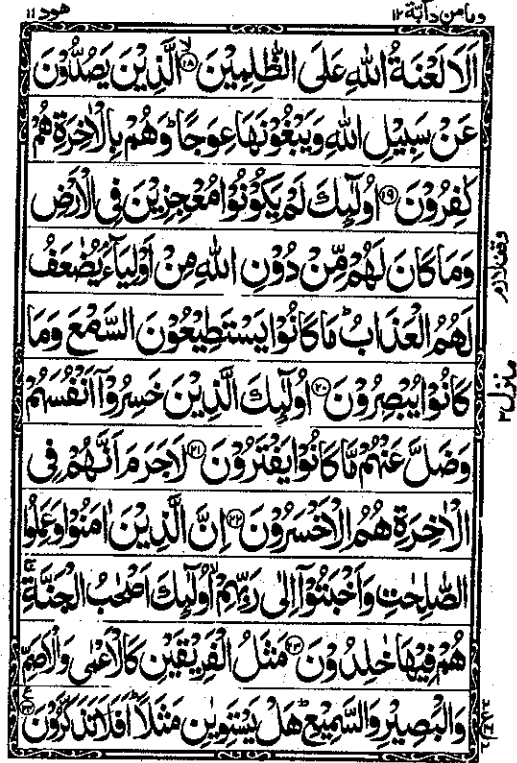 ومامن دآبة ١٢
هود ١١
اَلَا لَعْنَةُ اللّٰهِ عَلَى الظّٰلِمِيْنَ ۙ﴿۱۸﴾ الَّذِيْنَ يَصُدُّوْنَ
عَنْ سَبِيْلِ اللّٰهِ وَيَبْغُوْنَهَا عِوَجًا ؕ وَهُمْ بِالْاٰخِرَةِ هُمْ
كٰفِرُوْنَ ﴿۱۹﴾ اُولٰٓئِكَ لَمْ يَكُوْنُوْا مُعْجِزِيْنَ فِى الْاَرْضِ
وَمَا كَانَ لَهُمْ مِّنْ دُوْنِ اللّٰهِ مِنْ اَوْلِيَآءَ ۘ يُضٰعَفُ
لَهُمُ الْعَذَابُ ؕ مَا كَانُوْا يَسْتَطِيْعُوْنَ السَّمْعَ وَمَا
كَانُوْا يُبْصِرُوْنَ ﴿۲۰﴾ اُولٰٓئِكَ الَّذِيْنَ خَسِرُوْۤا اَنْفُسَهُمْ
وَضَلَّ عَنْهُمْ مَّا كَانُوْا يَفْتَرُوْنَ ﴿۲۱﴾ لَا جَرَمَ اَنَّهُمْ فِى
الْاٰخِرَةِ هُمُ الْاَخْسَرُوْنَ ﴿۲۲﴾ اِنَّ الَّذِيْنَ اٰمَنُوْا وَعَمِلُوا
الصّٰلِحٰتِ وَاَخْبَتُوْۤا اِلٰى رَبِّهِمْ ۙ اُولٰٓئِكَ اَصْحٰبُ الْجَنَّةِ ۚ
هُمْ فِيْهَا خٰلِدُوْنَ ﴿۲۳﴾ مَثَلُ الْفَرِيْقَيْنِ كَالْاَعْمٰى وَالْاَصَمِّ
وَالْبَصِيْرِ وَالسَّمِيْعِ ؕ هَلْ يَسْتَوِيٰنِ مَثَلًا ؕ اَفَلَا تَذَكَّرُوْنَ ﴿۲۴﴾
وقف لازم
منزل ۳